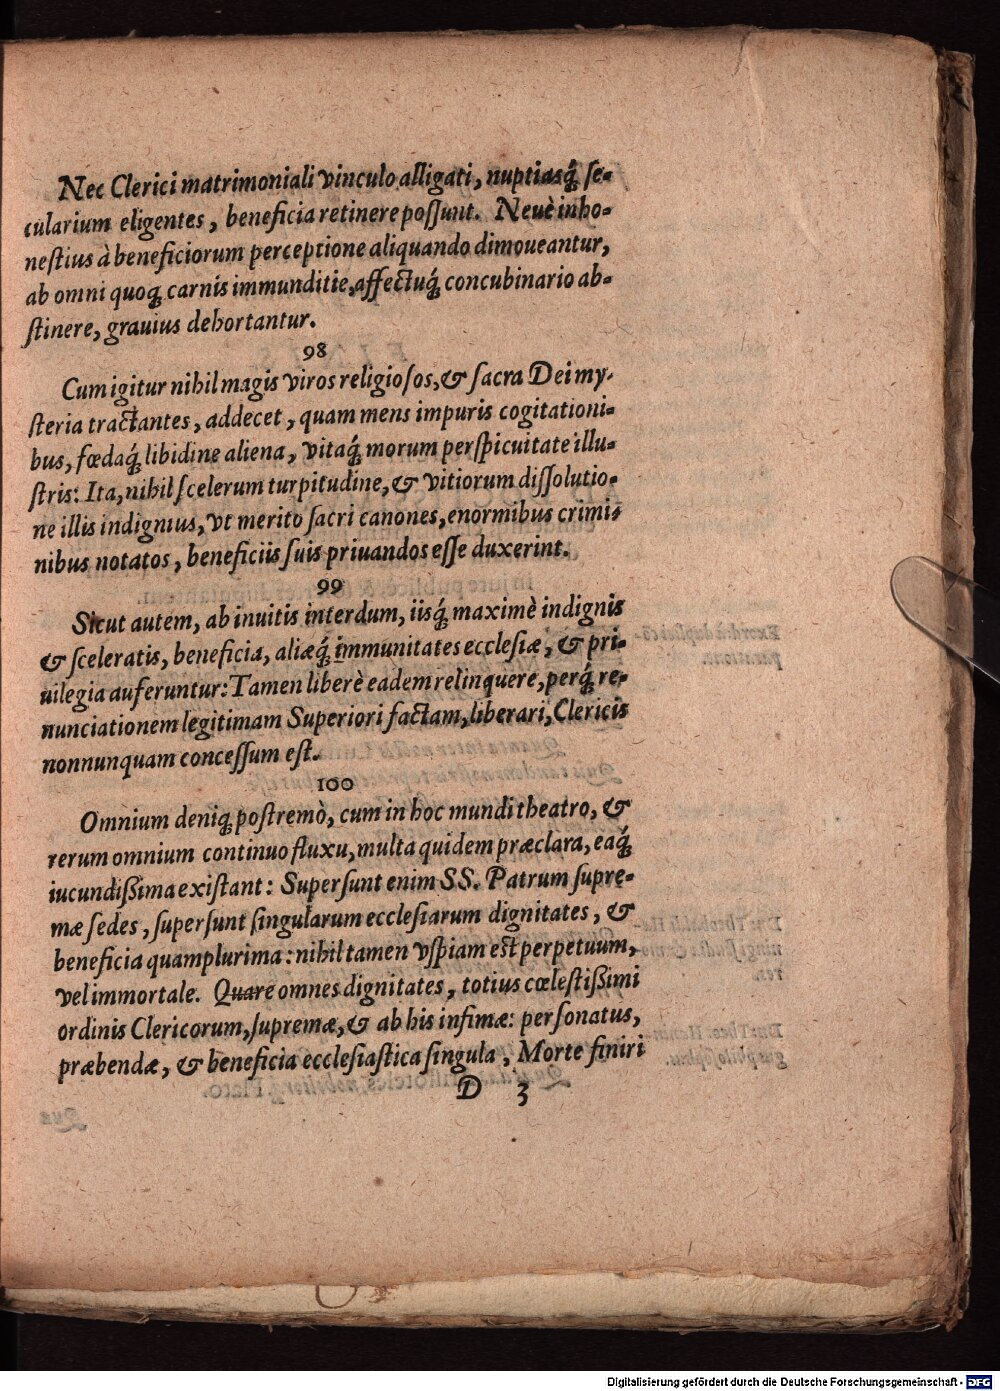 Nec Clerici matrimoniali vinculo alligati, nuptiasq́; ſe-
cularium eligentes, beneficia retinere poſſunt. Neuè inho-
neſtius à beneficiorum perceptione aliquando dimoueantur,
ab omni quoq; carnis immunditie, affectuq́; concubinario ab-
ſtinere, grauius dehortantur.
98
Cum igitur nihil magis viros religioſos, & ſacra Dei my-
ſteria tractantes, addecet, quam mens impuris cogitationi-
bus, fœdaq́; libidine aliena, vitaq́; morum perſpicuitate illu-
ſtris: Ita, nihil ſcelerum turpitudine, & vitiorum diſſolutio-
ne illis indignius, vt merito ſacri canones, enormibus crimi-
nibus notatos, beneficiis ſuis priuandos eſſe duxerint.
99
Sicut autem, ab inuitis interdum, iisq́; maximè indignis
& ſceleratis, beneficia, aliæq́; immunitates eccleſiæ, & pri-
uilegia auferuntur: Tamen liberè eadem relinquere, perq́; re-
nunciationem legitimam Superiori factam, liberari, Clericis
nonnunquam conceſſum eſt.
100
Omnium deniq; poſtremò, cum in hoc mundi theatro, &
rerum omnium continuo fluxu, multa quidem præclara, eaq́;
iucundißima exiſtant: Superſunt enim SS. Patrum ſupre-
mæ ſedes, ſuperſunt ſingularum eccleſiarum dignitates, &
beneficia quamplurima: nihil tamen vſpiam eſt perpetuum,
vel immortale. Quare omnes dignitates, totius cœleſtißimi
ordinis Clericorum, ſupremæ, & ab his infimæ: perſonatus,
præbendæ, & beneficia eccleſiaſtica ſingula, Morte finiri
D 3
Digitalisierung gefördert durch die Deutsche Forschungsgemeinschaft - DFG